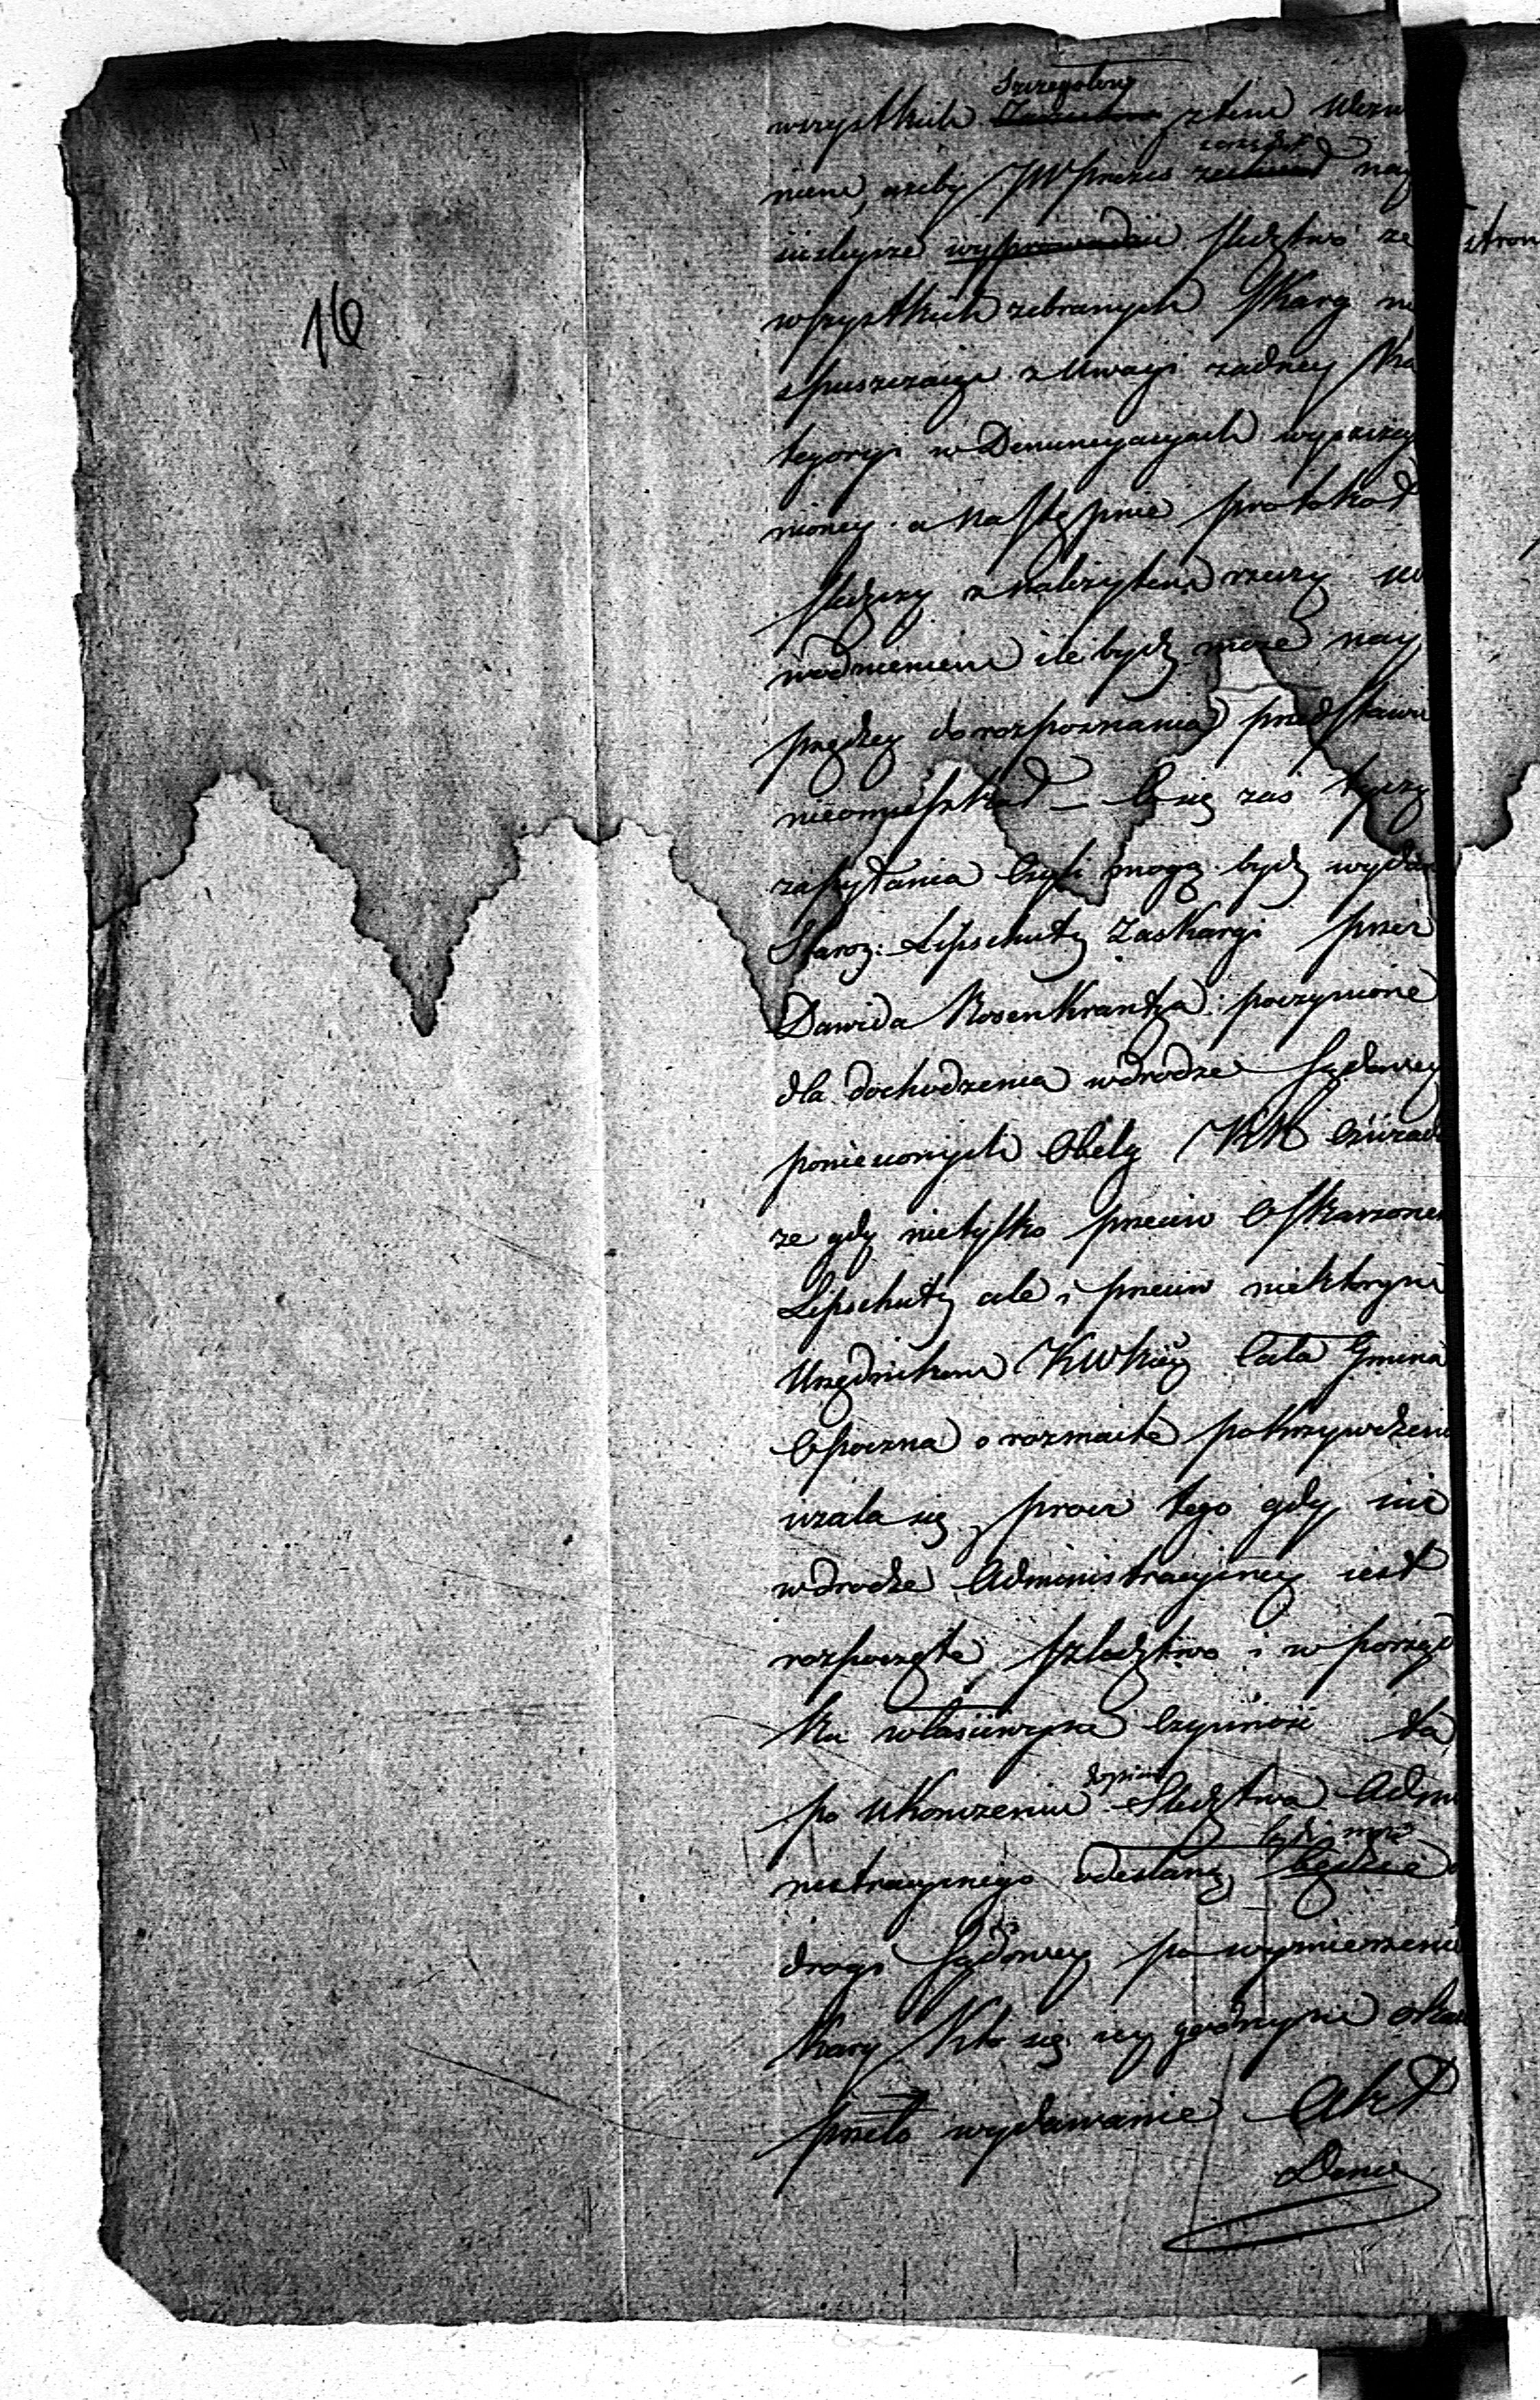 16
Szczegolny
wszystkich z tem Wezwa
niem, ażeby JW Prezes nay
ściśleysze wyprowadzić Sledztwo ze
wszystkich zebranych Skarg nie
spuszczaiąc z Uwagi żadney Ka
tegoryi w Denuncyacyach wyszczegu
nioney a następnie protokoł
śledczy z należytem rzeczy
wodnieniem ile bydz może nay
prędzey do rozpoznania przedstawić
nieomieszkał – Co się zaś tyczy
zapytania Czyli mogą bydz wydane
Staroz: Lipschutz Zaskargi przez
Dawida Rosenkrantza poczynione
dla dochodzenia w drodze Sądowey
poniesionych Obelg
że gdy nietylko przeciw Oskarżonem
Lipschutz ale i przeciw niektorym
Urzędnikom cała Gmina
Opoczna o rozmaite pokrzywdzenia
użala się, procz tego gdy iuż
w drodze Administracyiney iest
rozpoczęte Szledztwo i w porząd
ku właściwym Czynność ta
po Ukończeniu dopiero Sledztwa Admi
bydz może
nistracyinego odesłaną będzie
drogi Sądowey po wymierzeniu
Kary Kto się iey godnym okaże
przeto wydawanie Akt